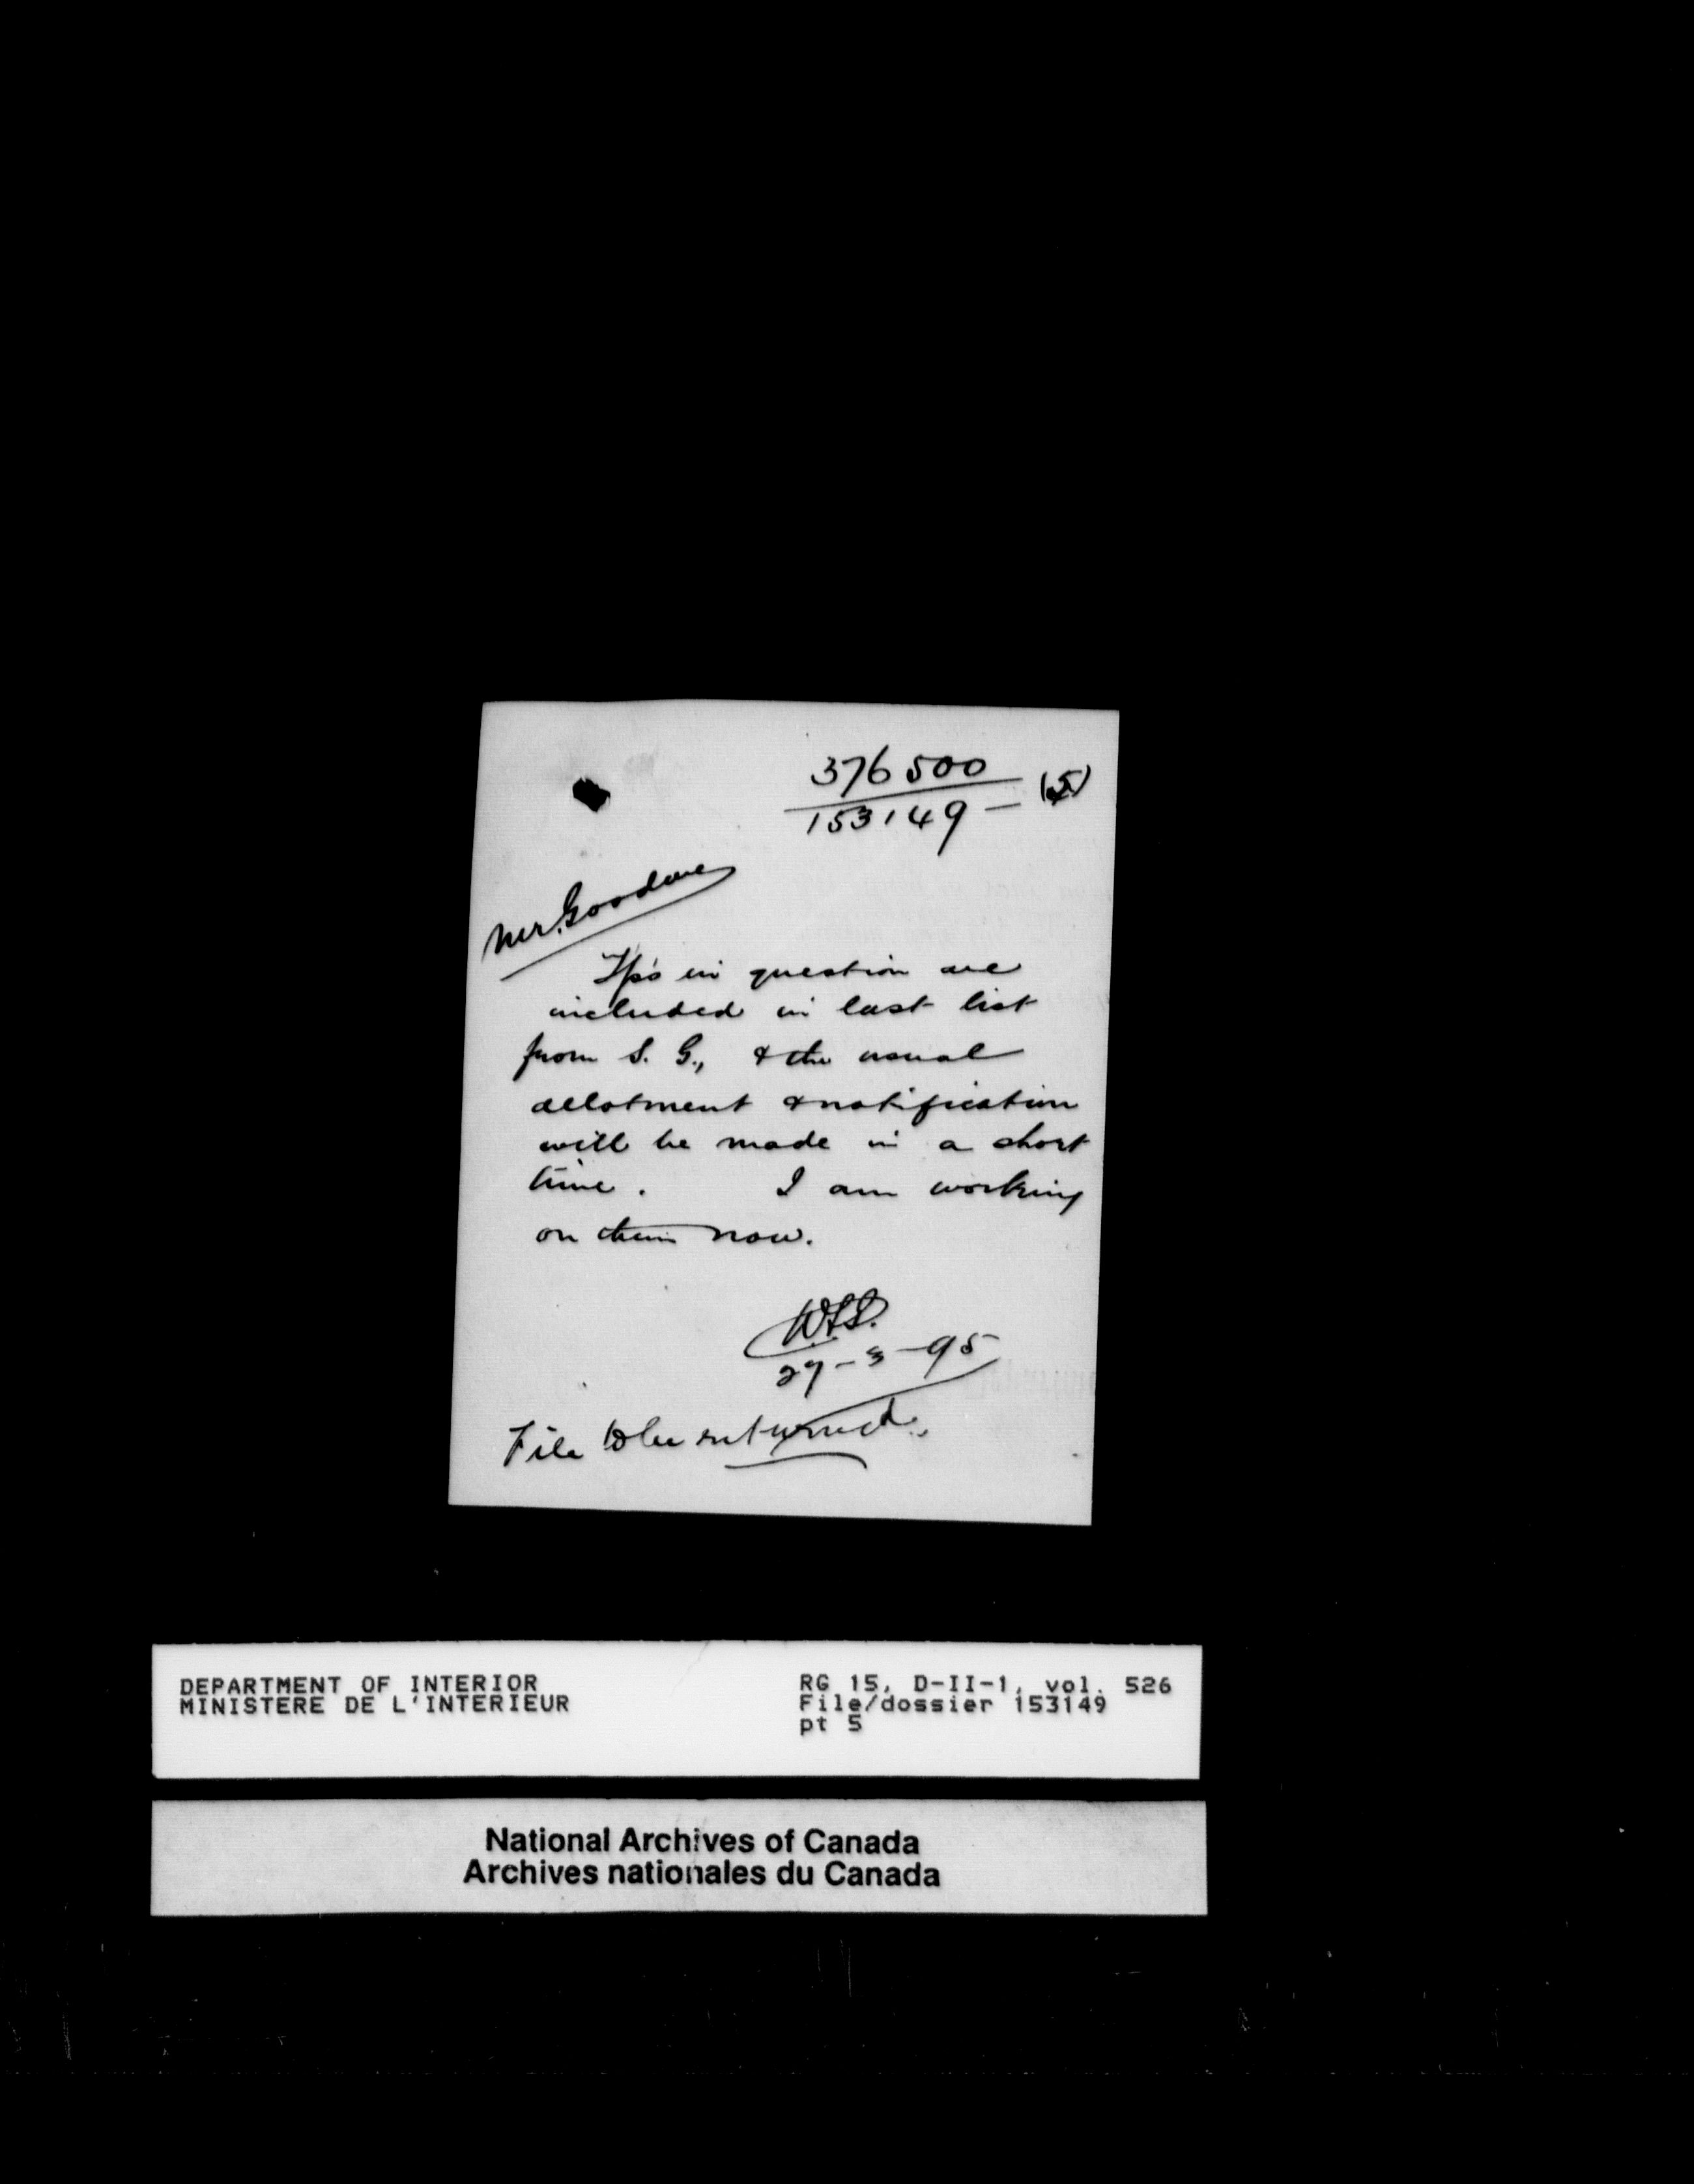 376500
153149 – (5)
Mr. Goodeve
Tps in question are
included in last list
from S. G., & the usual
allotment & notification
will be made in a short
time. I am working
on them now.
27-3-95
File to be returned.
DEPARTMENT OF INTERIOR
MINISTERE DE L'INTERIEUR
RG 15, D-II-1, vol. 526
File/dossier 153149
pt 5
National Archives of Canada
Archives nationales du Canada